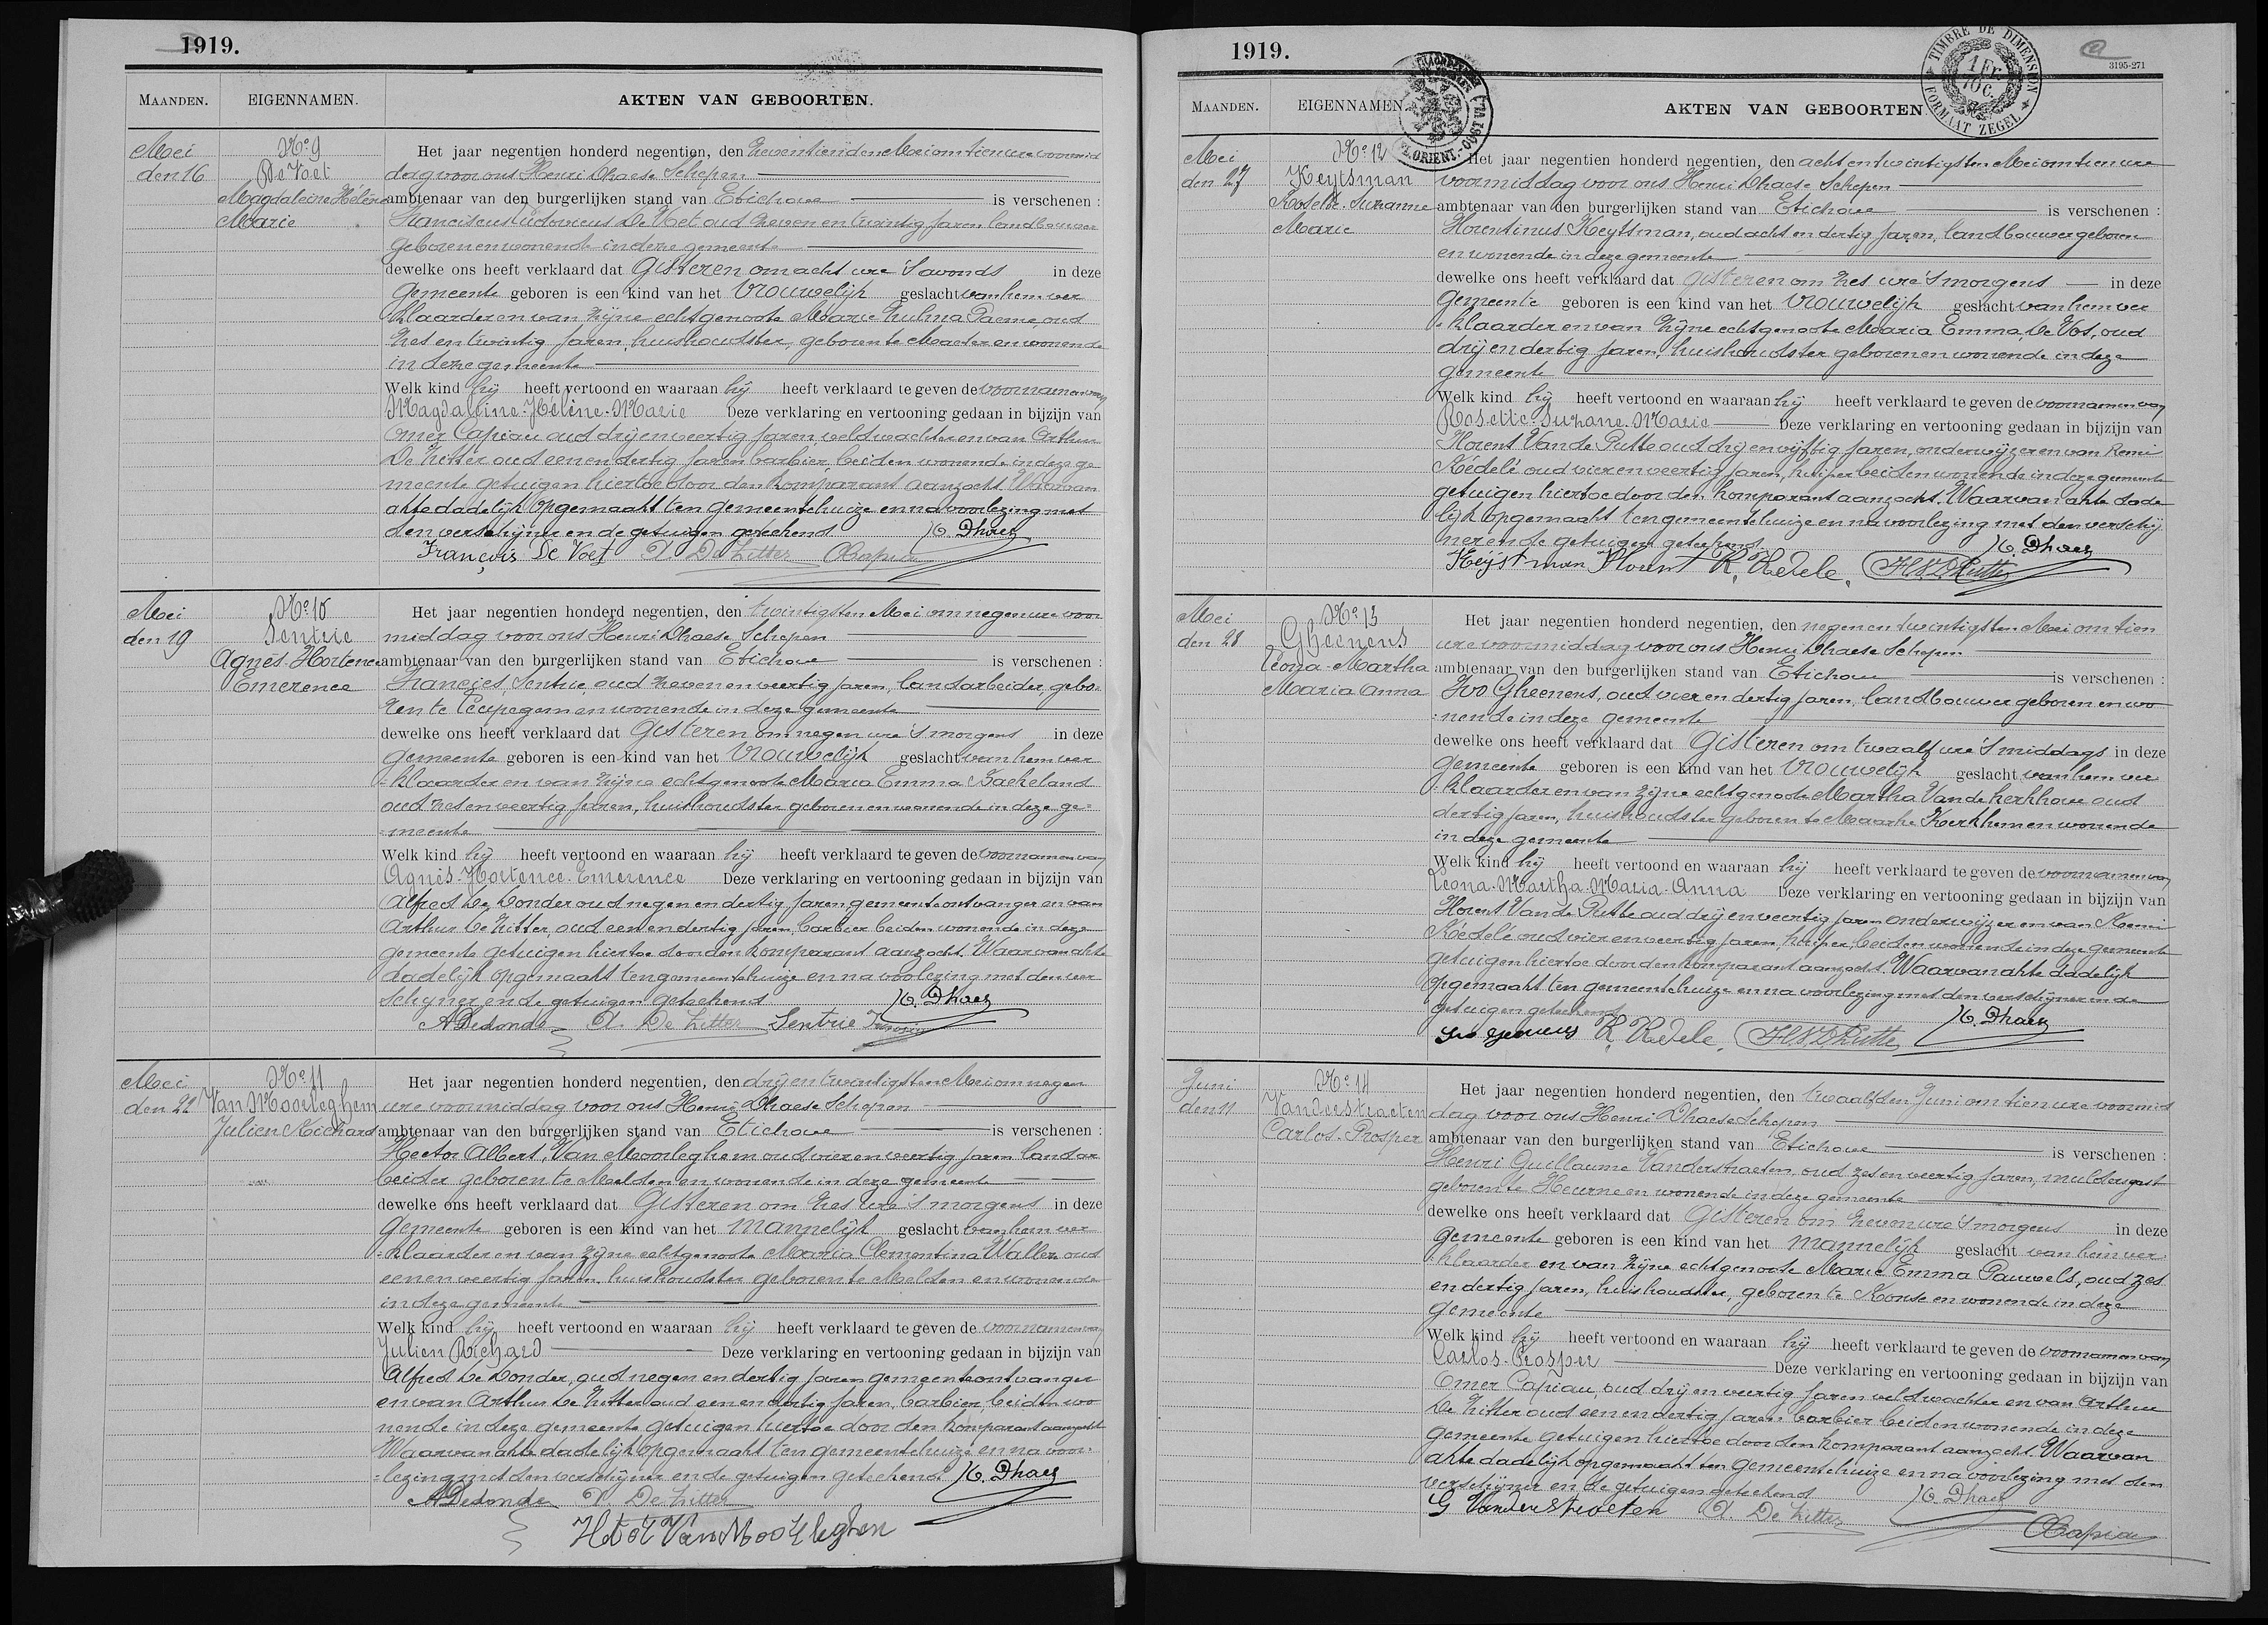 1919.
MAANDEN. EIGENNAMEN. AKTEN VAN GEBOORTEN.
Mei
den 16
No 9
De Voet
Magdaleine Hélène
Marie
Het jaar negentien honderd negentien, den zeventienden Mei om tien ure voormid
dag voor ons Henri Dhaese Schepen
ambtenaar van den burgerlijken stand van Etichove is verschenen :
Franciscus Ludovicus De Voet oud zeven en twintig jaren, landbouwer
geboren en wonende in deze gemeente
dewelke ons heeft verklaard dat Gisteren om acht ure 's avonds in deze
Gemeente geboren is een kind van het Vrouwelijk geslacht van hem ver
klaarder en van zijne echtgenoote Marie Zulma Paeme, oud
zes en twintig jaren, huishoudster, geboren te Maeter en wonende
in deze gemeente
Welk kind hij heeft vertoond en waaraan hij heeft verklaard te geven de voornamen van
Magdaleine-Hélène-Marie Deze verklaring en vertooning gedaan in bijzijn van
Omer Capiau oud drij en veertig jaren, veldwachter en van Arthur
De Zitter oud een en dertig jaren barbier, beiden wonende in deze ge
meente getuigen hiertoe door den komparant aanzocht Waarvan
akte dadelijk opgemaakt ten gemeentehuize en na voorlezing met
den verschijner en de getuigen geteekend H. Dhaes
François De Voet A. De Zitter OCapiau
Mei
den 19
No 10
Sentrie
Agnès-Hortence
Emerence
Het jaar negentien honderd negentien, den twintigsten Mei om negen ure voor
middag voor ons Henri Dhaese Schepen
ambtenaar van den burgerlijken stand van Etichove is verschenen :
Francies Sentrie, oud zeven en veertig jaren, landarbeider, gebo-
ren te Leupegem en wonende in deze gemeente
dewelke ons heeft verklaard dat Gisteren om negen ure 's morgens in deze
Gemeente geboren is een kind van het Vrouwelijk geslacht van hem ver
-klaarder en van zijne echtgenoote Maria Emma Baekeland
oud zes en veertig jaren, huishoudster geboren en wonende in deze ge-
-meente
Welk kind hij heeft vertoond en waaraan hij heeft verklaard te geven de voornamen van
Agnès-Hortence-Emerence Deze verklaring en vertooning gedaan in bijzijn van
Alfred De Donder oud negen en dertig jaren gemeenteontvanger en van
Arthur De Zitter, oud een en dertig jaren, barbier beiden wonende in deze
gemeente getuigen hiertoe door den komparant aanzocht. Waarvan akte
dadelijk opgemaakt ten gemeentehuize en na voorlezing met den ver
schijner en de getuigen geteekend H. Dhaes
ADedonder A. De Zitter Sentrie
Mei
den 22
No 11
Van Mooreleghem
Julien Richard
Het jaar negentien honderd negentien, den drij en twintigsten Mei om negen
ure voormiddag voor ons Henri Dhaese Schepen
ambtenaar van den burgerlijken stand van Etichove is verschenen :
Hector Albert, Van Mooreleghem oud vier en veertig jaren landar
beider geboren te Melden en wonende in deze gemeente
dewelke ons heeft verklaard dat Gisteren om zes ure 's morgens in deze
Gemeente geboren is een kind van het mannelijk geslacht van hem ver
-klaarder en van zijne echtgenoote Maria Clementina Wallez oud
een en veertig jaren, huishoudster geboren te Melden en wonende
in deze gemeente
Welk kind hij heeft vertoond en waaraan hij heeft verklaard te geven de voornamen van
Julien Richard Deze verklaring en vertooning gedaan in bijzijn van
Alfred De Donder, oud negen en dertig jaren gemeenteontvanger
en van Arthur De Zitter oud een en dertig jaren, barbier, beiden wo
nende in deze gemeente getuigen hiertoe door den komparant aanzocht
Waarvan akte dadelijk opgemaakt ten gemeentehuize en na voor-
-lezing met den verschijner en de getuigen geteekend H. Dhaes
ADedonder A. De Zitter
Hector Van Mooreleghen
1919.
3195-271
TIMBRE DE DIMENSION
1 Fr. 10 c.
FORMAAT ZEGEL
MAANDEN. EIGENNAMEN. AKTEN VAN GEBOORTEN
Mei
den 27
No 12
Keytsman
Rosette-Suzanne
Marie
Het jaar negentien honderd negentien, den acht en twintigsten Mei om tien ure
voormiddag voor ons Henri Dhaese Schepen
ambtenaar van den burgerlijken stand van Etichove is verschenen :
Florentinus Keytsman, oud acht en dertig jaren, landbouwer geboren
en wonende in deze gemeente
dewelke ons heeft verklaard dat gisteren om zes ure 's morgens in deze
Gemeente geboren is een kind van het Vrouwelijk geslacht van hem ver
-klaarder en van zijne echtgenoote Maria Emma, De Vos, oud
drij en dertig jaren, huishoudster geboren en wonende in deze
gemeente
Welk kind hij heeft vertoond en waaraan hij heeft verklaard te geven de voornamen van
Rosette-Suzane-Marie Deze verklaring en vertooning gedaan in bijzijn van
Florent Van de Putte oud drij en vijftig jaren, onderwijzer en van Remi
Rédelé oud vier en veertig jaren, kuiper beiden wonende in deze gemeente
getuigen hiertoe door den komparant aanzocht. Waarvan akte dade
lijk opgemaakt ten gemeentehuize en na voorlezing met den verschij
ner en de getuigen geteekend H. Dhaes
Keijstman Florent R. Redele. Fl V D Putte
Mei
den 28
No 13
Gheenens
Leona-Martha
Maria Anna
Het jaar negentien honderd negentien, den negen en twintigsten Mei om tien
ure voormiddag voor ons Henri Dhaese Schepen
ambtenaar van den burgerlijken stand van Etichove is verschenen :
Ivo Gheenens, oud vier en dertig jaren, landbouwer geboren en wo
-nende in deze gemeente
dewelke ons heeft verklaard dat Gisteren om twaalf ure 's middags in deze
Gemeente geboren is een kind van het Vrouwelijk geslacht van hem ver
-klaarder en van zijne echtgenoote Martha Van de Kerkhove oud
dertig jaren, huishoudster geboren te Maarke Kerkhem en wonende
in deze gemeente
Welk kind hij heeft vertoond en waaraan hij heeft verklaard te geven de voornamen van
Leona-Martha-Maria-Anna Deze verklaring en vertooning gedaan in bijzijn van
Florent Van de Putte oud drij en veertig jaren onderwijzer en van Remi
Rédelé oud vier en veertig jaren, kuiper, beiden wonende in deze gemeente
getuigen hiertoe door den komparant aanzocht. Waarvan akte dadelijk
opgemaakt ten gemeentehuize en na voorlezing met den verschijner en de
getuigen geteekend H. Dhaes
Ivo Geenens R. Redele. Fl V D Putte
Juni
den 11
No 14
Vanderstraeten
Carlos-Prosper
Het jaar negentien honderd negentien, den twaalfden Juni om tien ure voormid
dag voor ons Henri Dhaese Schepen
ambtenaar van den burgerlijken stand van Etichove is verschenen :
Henri Guillaume Vanderstraeten, oud zes en veertig jaren, muldersgast
geboren te Heurne en wonende in deze gemeente
dewelke ons heeft verklaard dat Gisteren om zeven ure 's morgens in deze
Gemeente geboren is een kind van het mannelijk geslacht van hem ver-
-klaarder en van zijne echtgenoote Marie Emma Pauwels, oud zes
en dertig jaren, huishoudster, geboren te Ronse en wonende in deze
gemeente
Welk kind hij heeft vertoond en waaraan hij heeft verklaard te geven de voornamen van
Carlos-Prosper Deze verklaring en vertooning gedaan in bijzijn van
Omer Capiau oud drij en veertig jaren veldwachter en van Arthur
De Zitter oud een en dertig jaren barbier beiden wonende in deze
gemeente getuigen hiertoe door den komparant aanzocht. Waarvan
akte dadelijk opgemaakt ten gemeentehuize en na voorlezing met den
verschijner en de getuigen geteekend H. Dhaes
G Vanderstraeten A. De Zitter
OCapiau